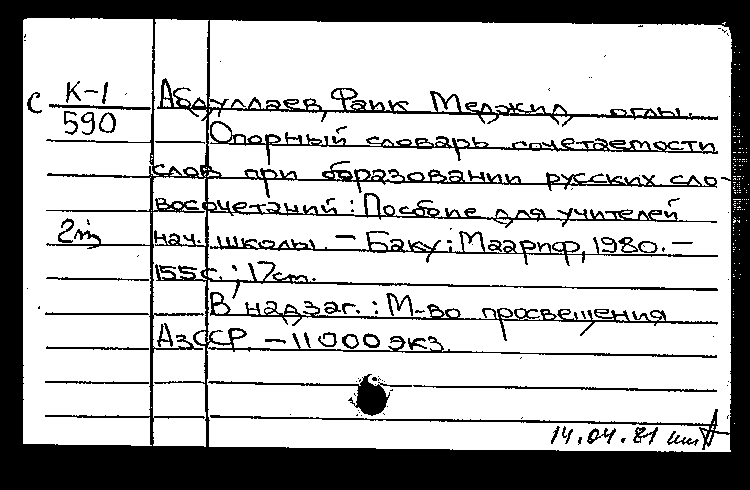 С К-1
590
Абдуллаев, Фаик Меджид оглы.
Опорный словарь сочетаемости
слов при образовании русских сло-
восочетаний: Пособие для учителей
нач. школы. – Баку: Маариф, 1980. –
155 с.; 17 cm.
В надзаг.: М-во просвещения
АзССР. – 11000 экз.
14.04.81